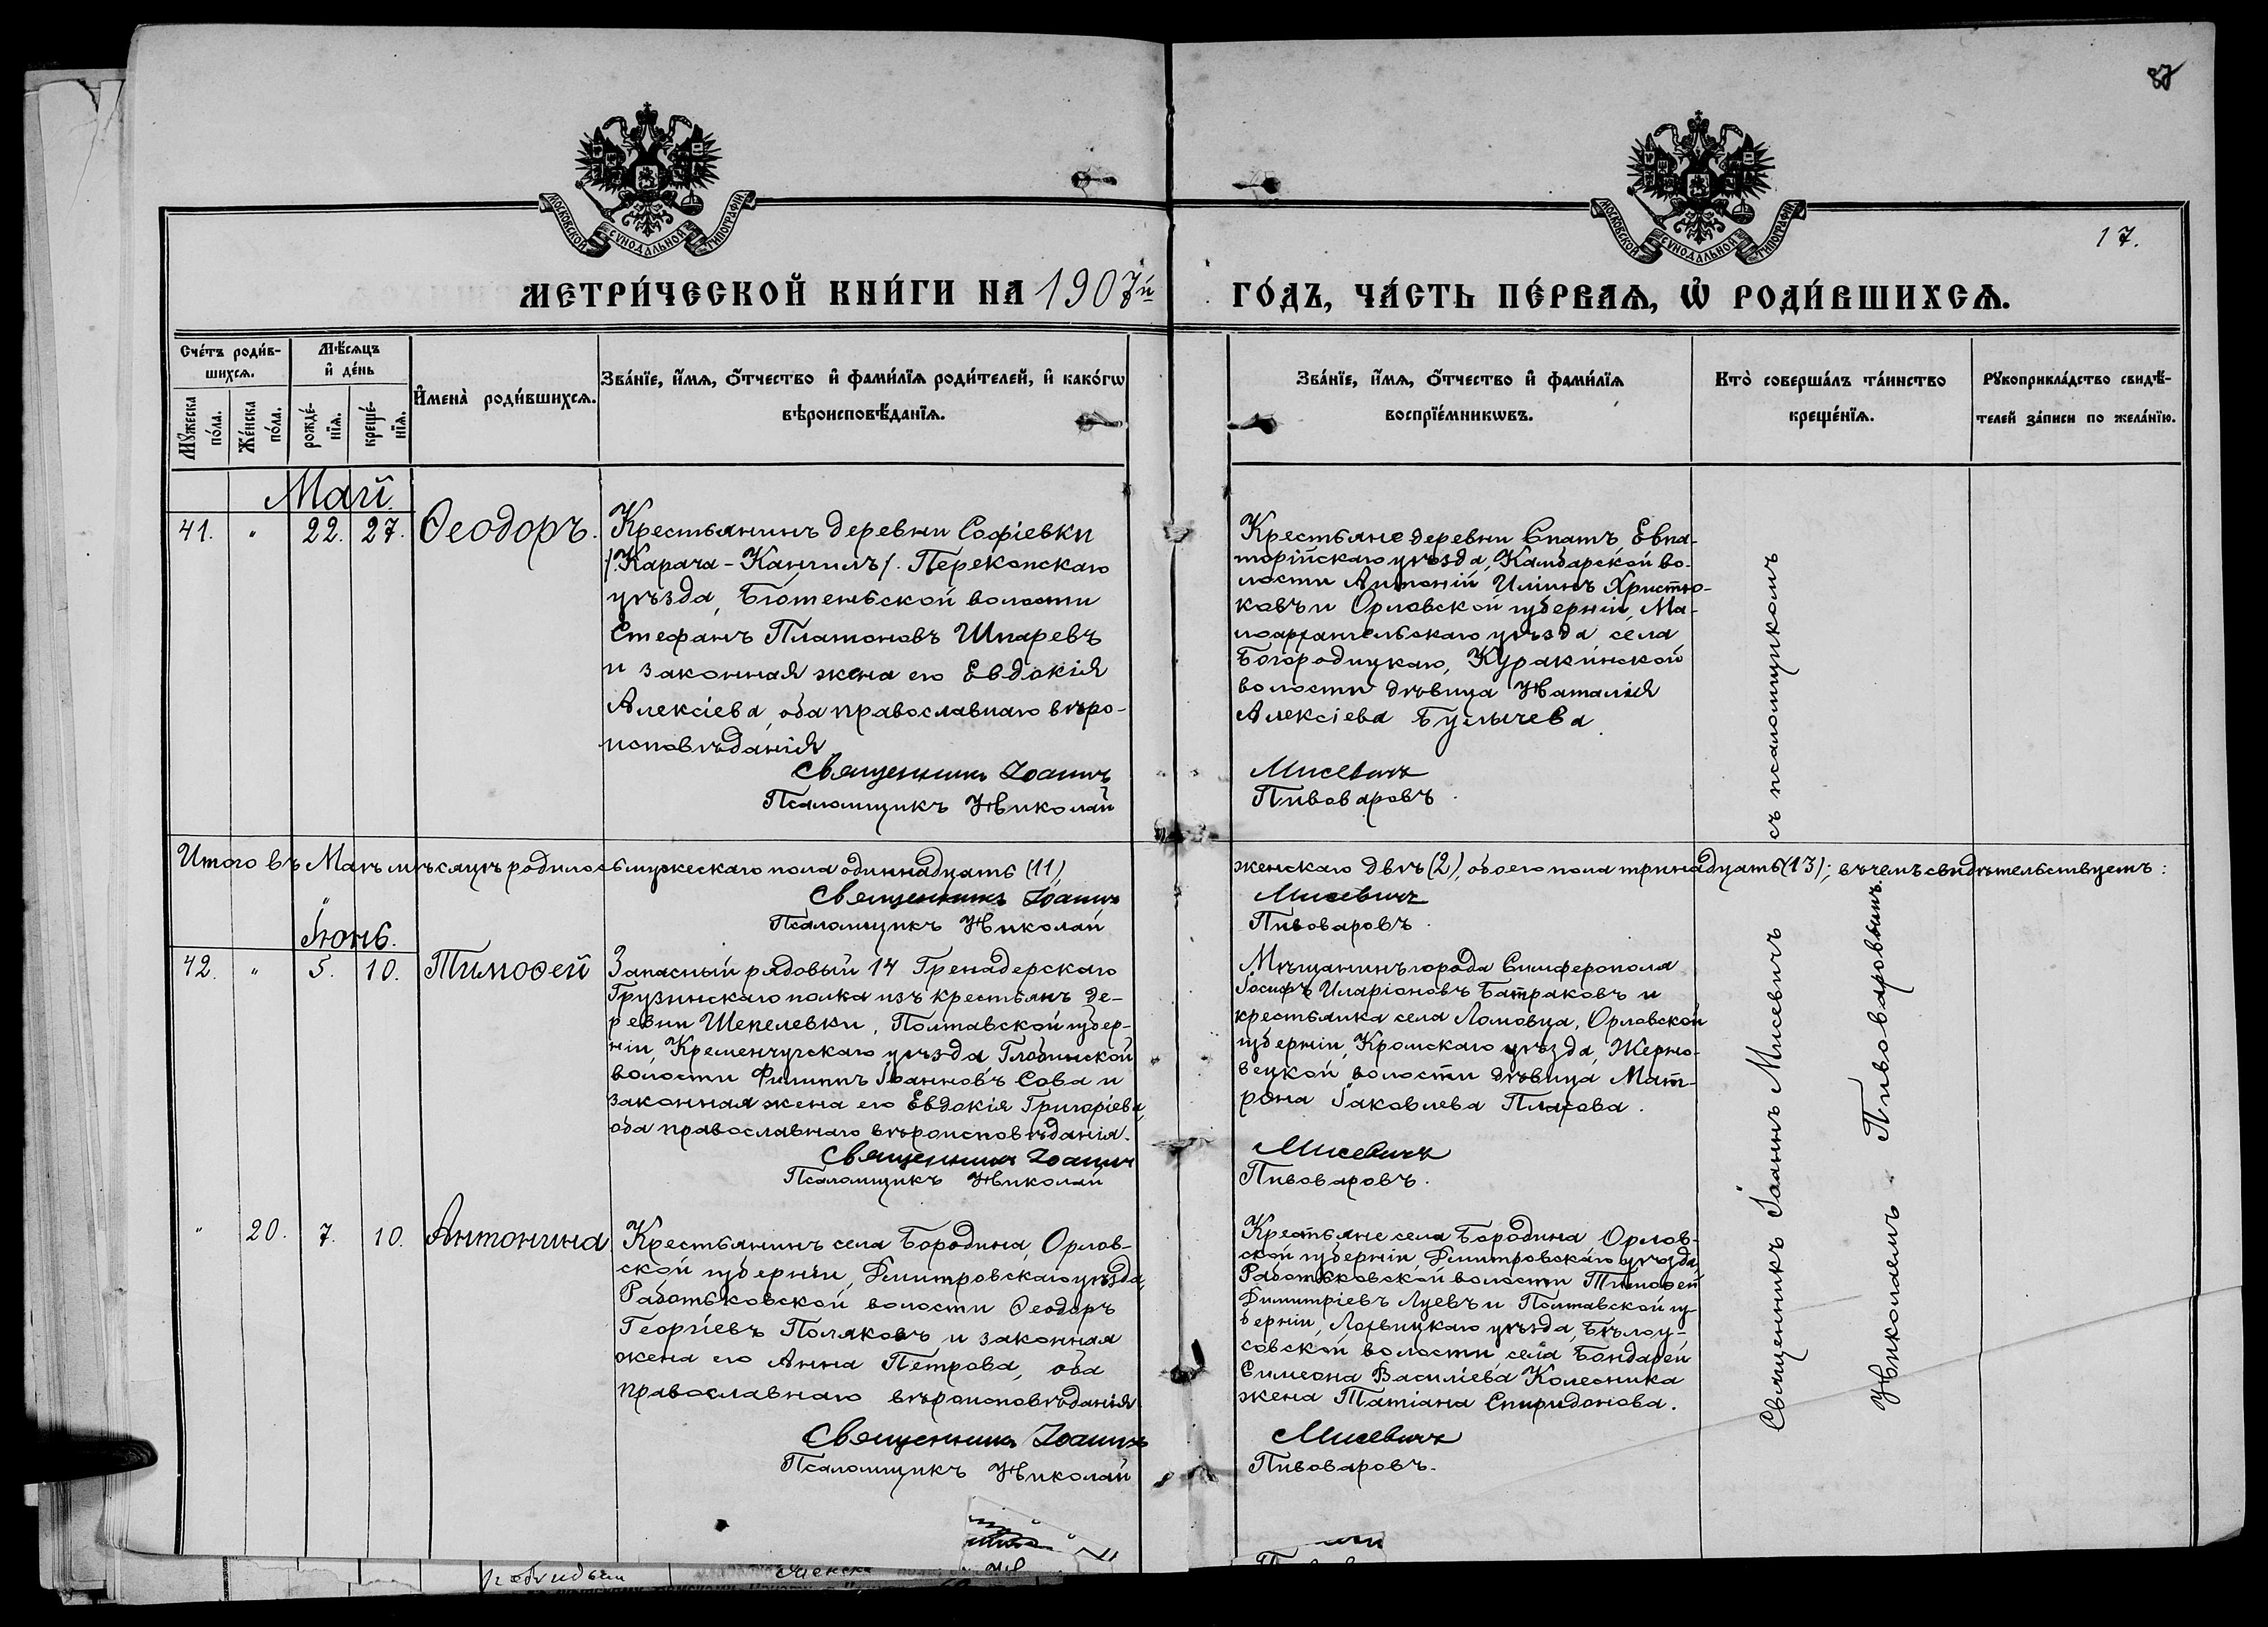 87
МОСКОВСКОЙ СѴНОДАЛЬНОЙ ТИПОГРАФІИ.
МОСКОВСКОЙ СѴНОДАЛЬНОЙ ТИПОГРАФІИ.
17.
МЕТРИ́ЧЕСКОЙ КНИ́ГИ НА 1907й
ГО́ДЪ, ЧА́СТЬ ПЕ́РВАѦ, Ѡ҆ РОДИ́ВШИХСѦ.
Сче́тъ роди́в-
шихсѧ.
Мꙋ́жеска
по́ла.
Же́нска
по́ла.
Мѣ́сѧцъ
и҆ де́нь
рожде́-
нїѧ.
креще́-
нїѧ.
И҆мена̀ роди́вшихсѧ.
Зва́нїе, и҆́мѧ, ѻ҆́тчество и҆ фами́лїѧ роди́телей, и҆ како́гѡ
вѣроисповѣ́данїѧ.
Зва́нїе, и҆́мѧ, ѻ҆́тчество и҆ фами́лїѧ
воспрїе́мникѡвъ.
Кто̀ соверша́лъ та́инство
креще́нїѧ.
Рꙋкоприкла́дство свидѣ́-
телей за́писи по жела́нїю.
Май
41. " 22. 27. Ѳеодоръ.
Крестьянинъ деревни Софіевки
/Карача-Кангилъ/. Перекопскаго
уѣзда, Бютеньской волости
Стефанъ Платоновъ Шпаревъ
и законная жена его Евдокія
Алексіева, оба православнаго вѣро-
исповѣданія
Священникъ Іоаннъ
Псаломщикъ Николай
Крестьяне деревни Спатъ Евпа-
торійскаго уѣзда, Камбарской во-
лости Антоній Илiинъ Христю-
ковъ и Орловской губерніи, Ма-
лоархангельскаго уѣзда села
Богородицкаго, Куракинской
волости дѣвица Наталія
Алексіева Булычева.
Мисевичъ
Пивоваровъ.
Итого въ Маѣ мѣсяцѣ родилось мужескаго пола одиннадцать (11)
женскаго двѣ (2), обоего пола тринадцать (13); въ чемъ свидѣтельствуемъ:
Священникъ Іоаннъ
Псаломщикъ Николай
Мисевичъ
Пивоваровъ.
Іюнь.
42. " 5. 10. Тимоѳей
Запасный рядовый 14 Гренадерскаго
Грузинскаго полка изъ крестьянъ де-
ревни Шепелевки, Полтавской губер-
ніи, Кременчугскаго уѣзда Глобинской
волости Филиппъ Іоанновъ Сова и
законная жена его Евдокія Григоріева,
оба православнаго вѣроисповѣданія.
Священникъ Іоаннъ
Псаломщикъ Николай
Мѣщанинъ города Симферополя
Іосифъ Иларіоновъ Батраковъ и
крестьянка села Ломовца, Орловской
губерніи, Кромскаго уѣзда, Жерно-
вецкой волости дѣвица Мат-
рона Іаковлева
Мисевичъ
Пивоваровъ.
" 20. 7. 10. Антонина
Крестьянинъ села Бородина, Орлов-
ской губерніи, Дмитровскаго уѣзда,
Работьковской волости Ѳеодоръ
Георгіевъ Поляковъ и законная
жена его Анна Петрова, оба
православнаго вѣроисповѣданія
Священникъ Іоаннъ
Псаломщикъ Николай
Крестьяне села Бородина Орлов-
ской губерніи, Дмитровскаго уѣзда,
Работьковской волости Тимоѳей
Димитріевъ Луевъ и Полтавской гу-
берніи, Лохвицкаго уѣзда, Бѣлоу-
совской волости села Бондарей
Симеона Василіева Колесника
жена Татіана Спиридонова.
Мисевичъ
Пивоваровъ.
Священникъ Іоаннъ Мисевичъ съ псаломщикомъ
Николаемъ Пивоваровымъ.